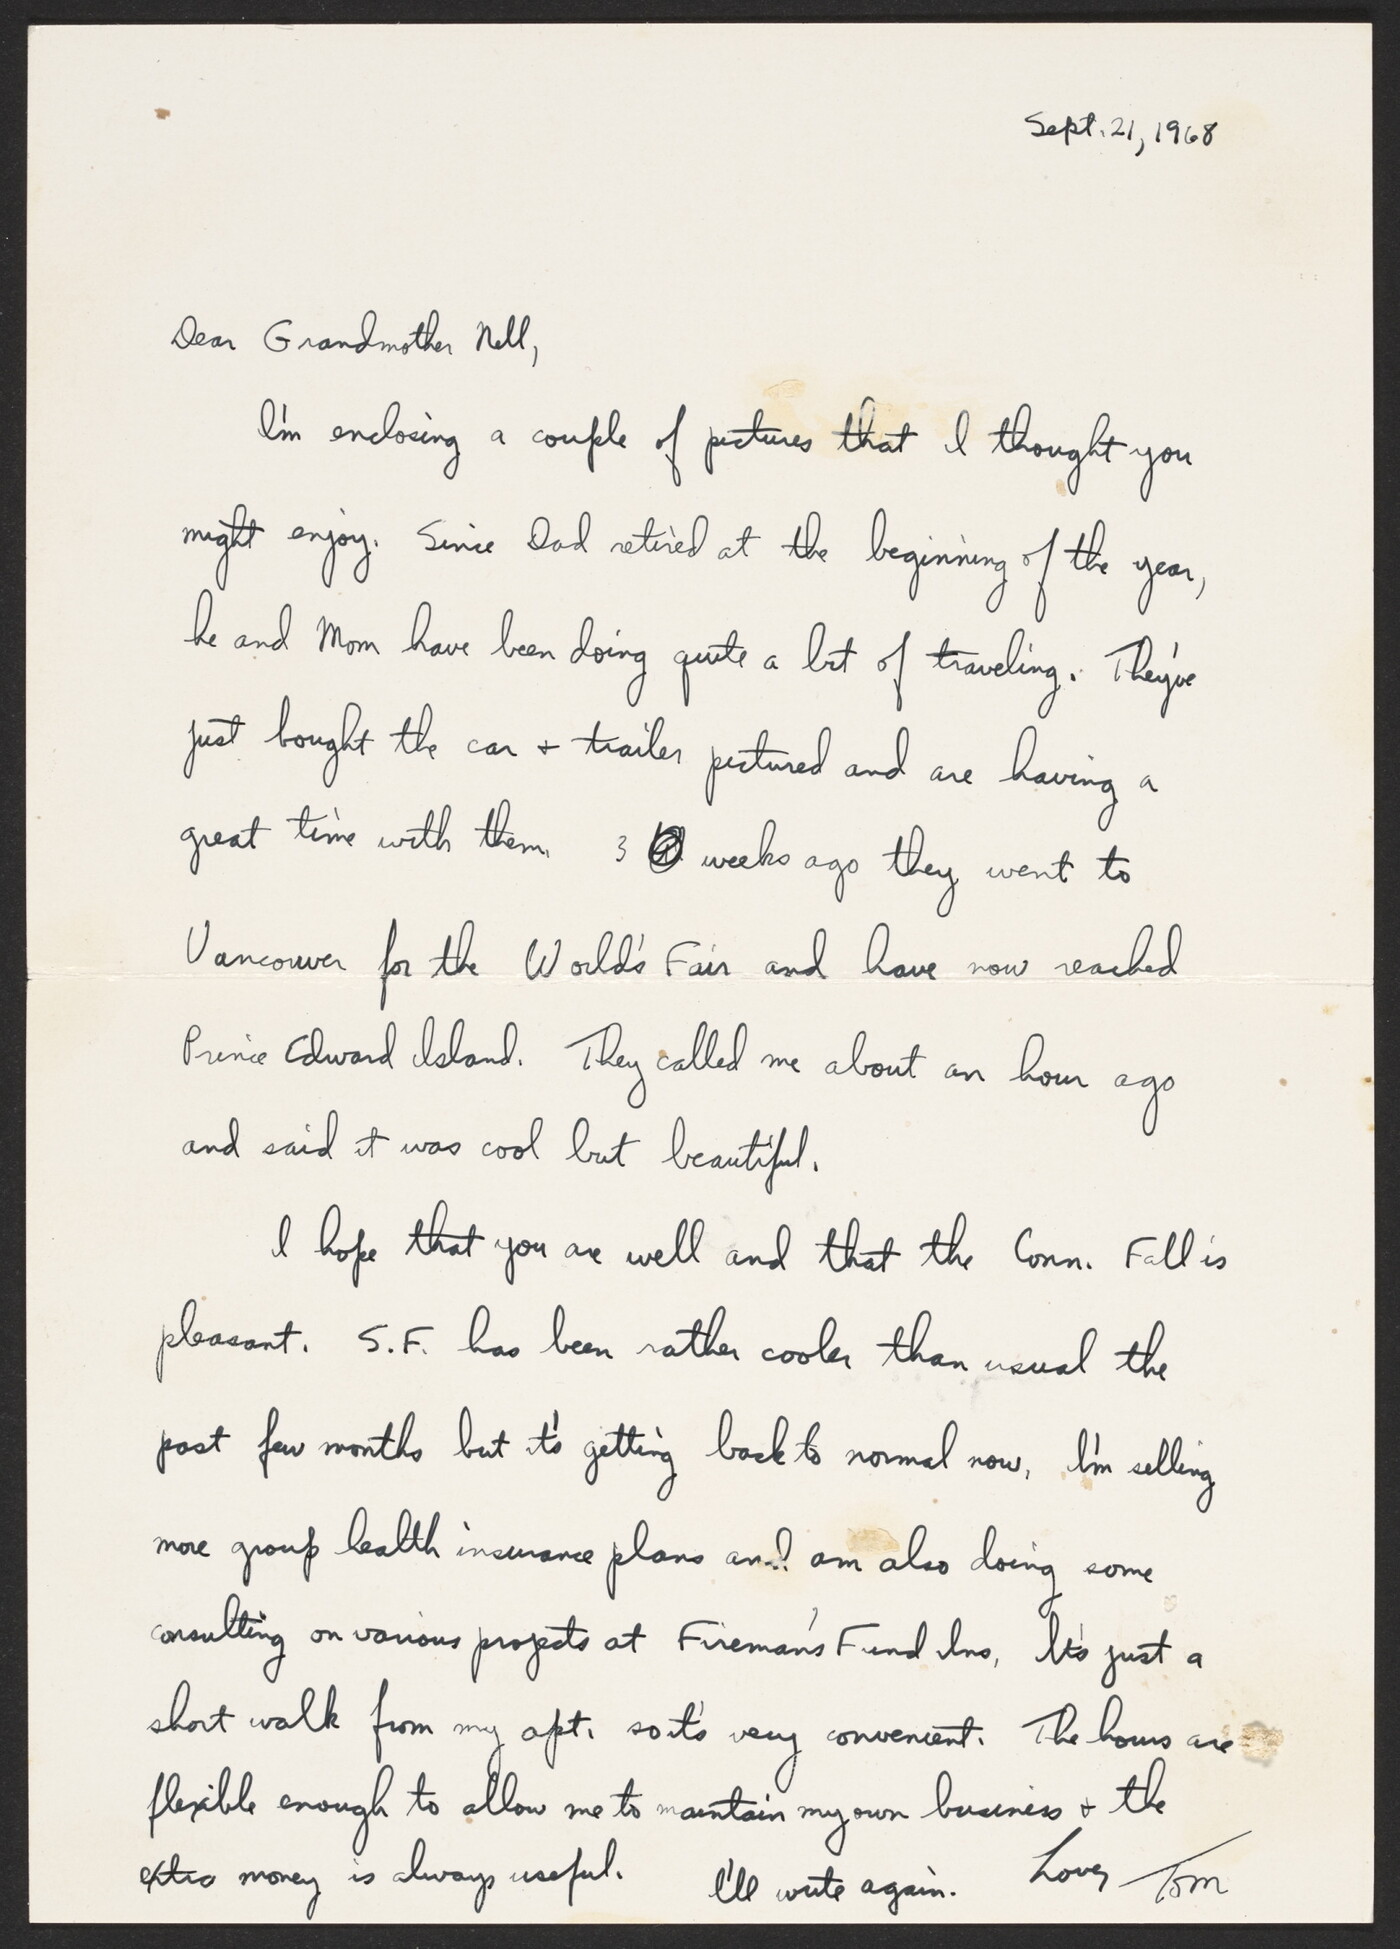 Sept. 21, 1968
Dear Grandmother Nell,
I'm enclosing a couple of pictures that I thought you
might enjoy. Since Dad retired at the beginning of the year,
he and Mom have been doing quite a bit of traveling. They've
just bought the car + trailer pictured and are having a
great time with them. 3 weeks ago they went to
Vancouver for the World's Fair and have now reached
Prince Edward Island. They called me about an hour ago
and said it was cool but beautiful.
I hope that you are well and that the Conn. Fall is
pleasant. S.F. has been rather cooler than usual the
past few months but it's getting back to normal now. I'm selling
more group health insurance plans and am also doing some
consulting on various projects at Fireman's Fund Ins. It's just a
short walk from my apt. so it's very convenient. The hours are
flexible enough to allow me to maintain my own business + the
extra money is always useful. I'll write again. Love, Tom